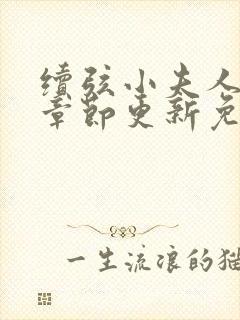 續弦小夫人
章節更新免
一生流浪的猫